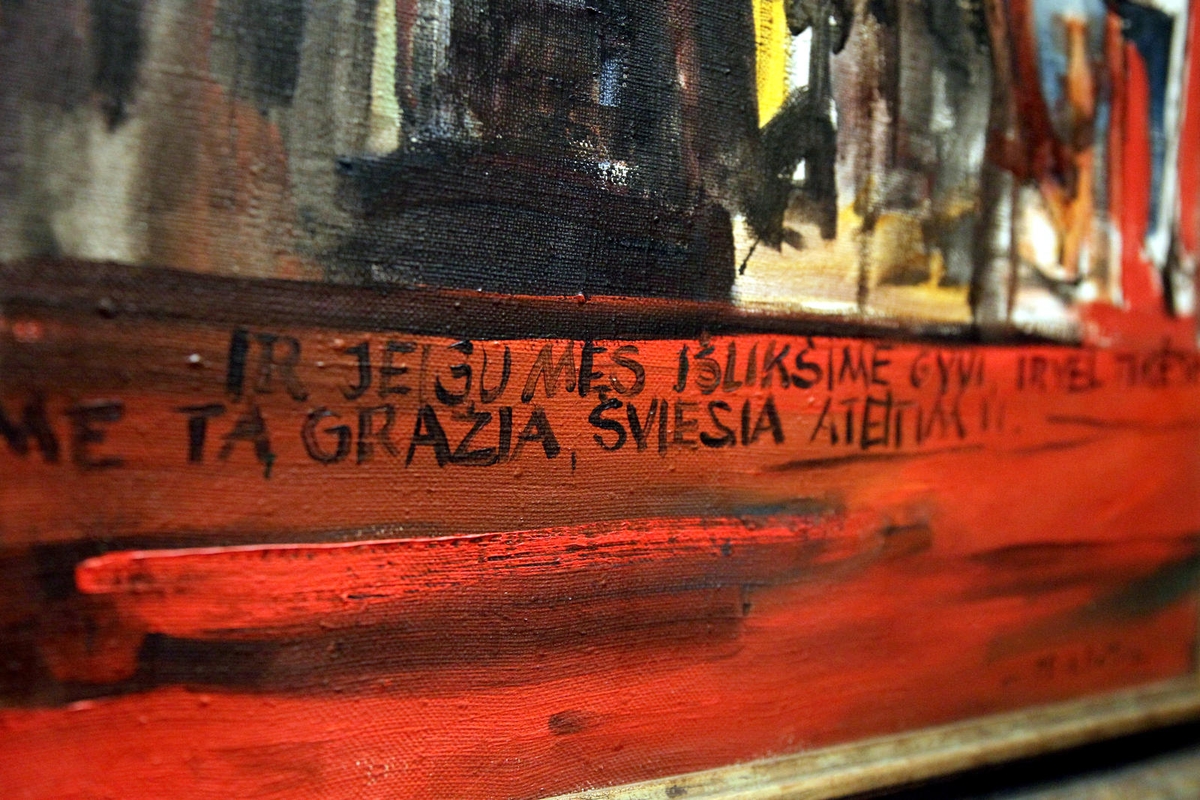 IR JEIGU MES IŠLIKSIME GYVI, IR VĖL
ME TĄ GRAŽIĄ, ŠVIESIĄ ATEITIM !!.